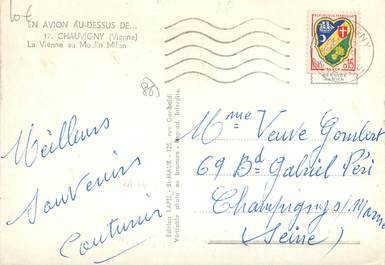 10€
EN AVION AU-DESSUS DE...
17. CHAUVIGNY (Vienne)
La Vienne au Moulin Milon
89
Meilleurs
Souvenirs
Couturier
Edition LAPIE - St-MAUR - 125, rue Garibaldi
Véritable photo au bromure - Reprod. Interdite.
0f15
Mme Veuve Gombert
69 Bd Gabriel Péri
Champigny s/Marne
(Seine)